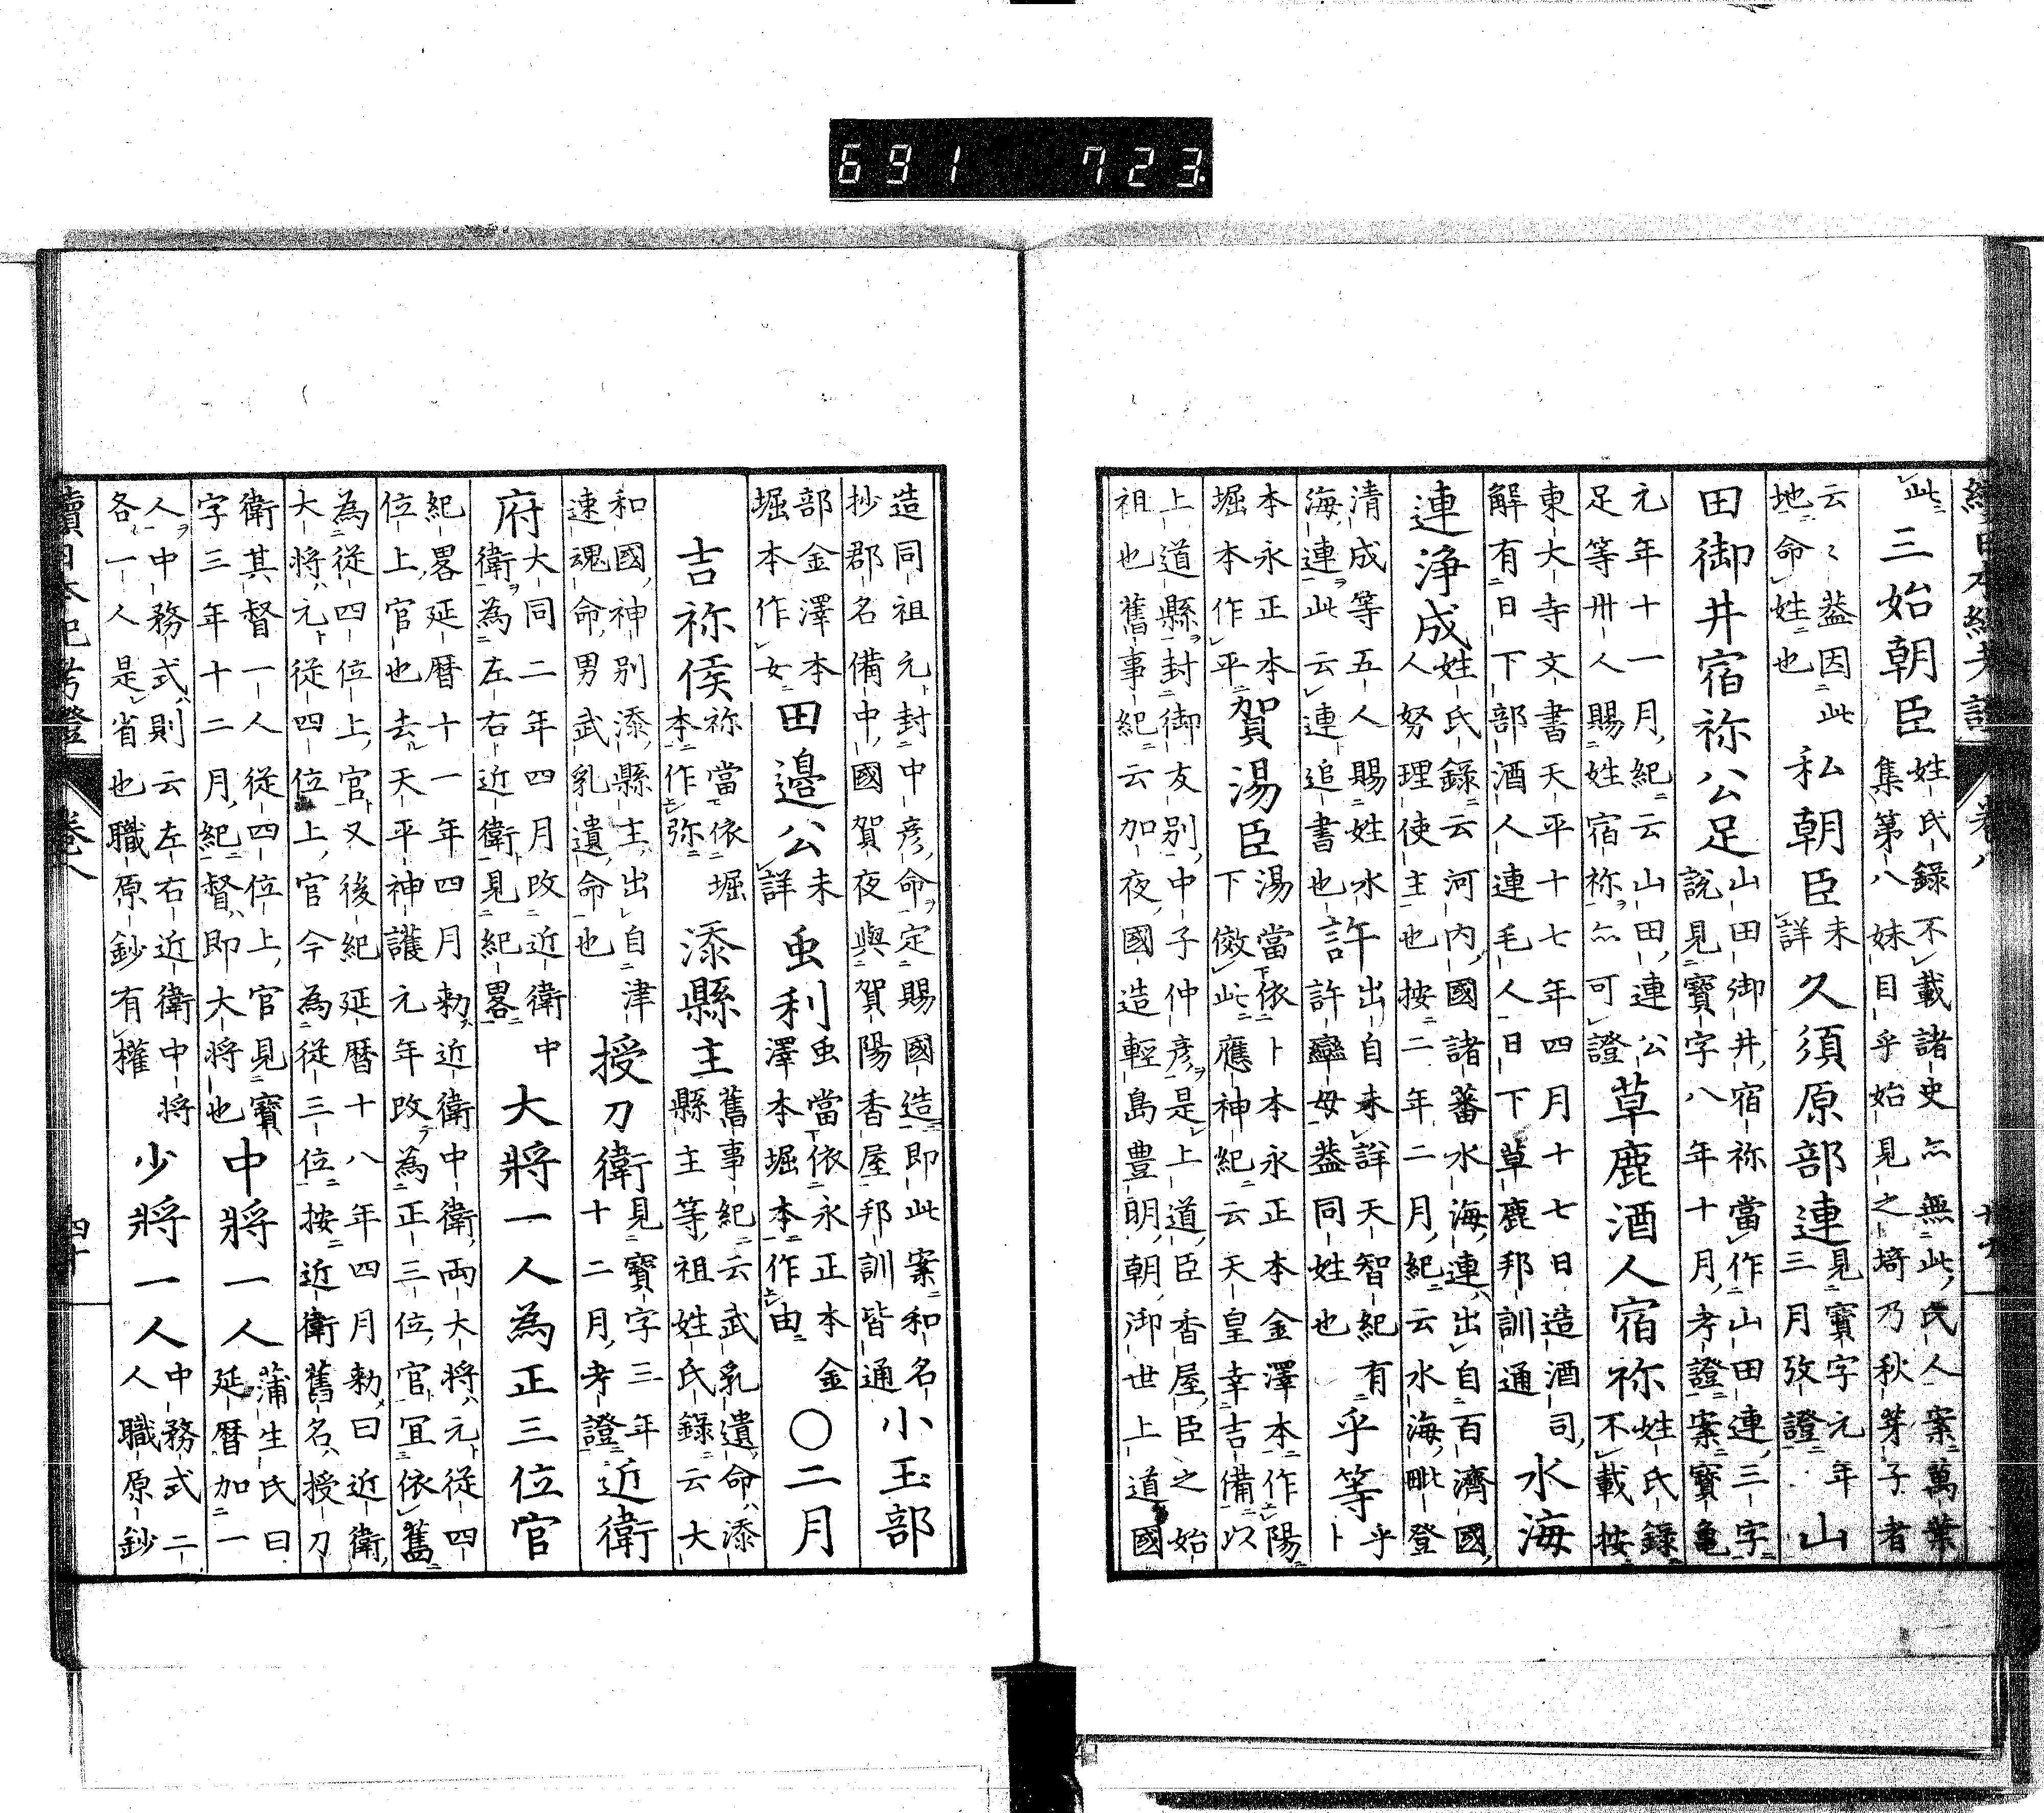 691 723
續日本紀考證 卷八
此三始朝臣姓氏錄不載諸史亦無此氏人案萬葉
集第八妹目乎始見之埼乃秋芽子者
云々蓋因此
地命姓也私朝臣未詳久須原部連見寶字元年
三月攷證山
田御井宿祢公足山田御井宿祢當作山田連三字
說見寶字八年十月考證案寶龜
元年十一月紀云山田連公
足等卅人賜姓宿祢亦可證草鹿酒人宿祢姓氏錄
不載按
東大寺文書天平十七年四月十七日造酒司
解有日下部酒人連毛人日下草鹿邦訓通水海
連淨成姓氏錄云河內國諸蕃水海連出自百濟國
人努理使主也按二年二月紀云水海毗登
清成等五人賜姓水
海連此云連追書也許出自未詳天智紀有
許率母蓋同姓也乎等乎卜
本永正本
堀本作平賀湯臣湯當依卜本永正本金澤本作陽
下傚此應神紀云天皇幸吉備以
上道縣封御友別中子仲彥是上道臣香屋臣之始
祖也舊事紀云加夜國造輕島豐明朝御世上道國
造同祖元封中彥命定賜國造即此案和名
抄郡名備中國賀夜與賀陽香屋邦訓皆通小玉部
部金澤本
堀本作女田邊公未詳虫利虫當依永正本金
澤本堀本作由〇二月
吉祢侯祢當依堀
本作弥添縣主舊事紀云武乳遺命添
縣主等祖姓氏錄云大
和國神別添縣主出自津
速魂命男武乳遺命也授刀衛見寶字三年
十二月考證近衛
府大同二年四月改近衛中
衛為左右近衛見紀畧大將一人為正三位官
紀畧延曆十一年四月勅近衛中衛兩大將元從四
位上官也去天平神護元年改為正三位官宜依舊
為從四位上官又後紀延曆十八年四月勅曰近衛
大將元從四位上官今為從三位按近衛舊名授刀
衛其督一人從四位上官見寶
字三年十二月紀督即大將也中將一人蒲生氏曰
延曆加一
人中務式則云左右近衛中將
各一人是省也職原鈔有權少將一人中務式二
人職原鈔
續日本紀考證 卷八 四十